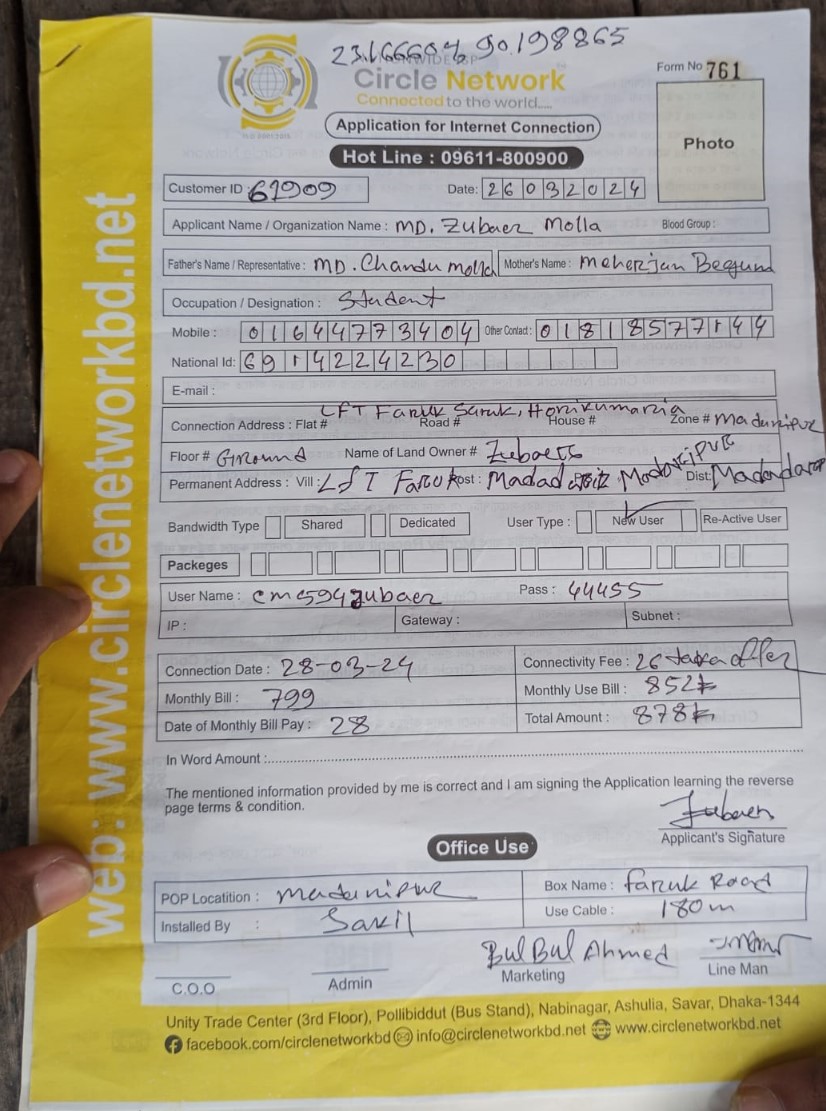 23.166604, 90.198865
Circle Network
Connected to the world....
Form No 761
Application for Internet Connection
Photo
Hot Line : 09611-800900
Customer ID : 61909 Date: 26032024
Applicant Name / Organization Name : MD. Zubaer Molla Blood Group :
Father's Name / Representative : MD. Chandu Molla Mother's Name : Meherjan Begum
Occupation / Designation : Student
Mobile : 01644773404 Other Contact : 01818577144
National Id: 6914224230
E-mail :
LFT Faruk Saruk, Horikumaria
Connection Address : Flat # Road # House # Zone # Madaripur
Floor # Ground Name of Land Owner # Zubaer
Permanent Address : Vill : LFT Faruk Post : Madaripur Dist:
Bandwidth Type Shared Dedicated User Type : New User Re-Active User
Packeges
User Name : cms594zubaer Pass : 44455
IP : Gateway : Subnet :
Connection Date : 28-03-24 Connectivity Fee : 26 taka offer
Monthly Bill : 799 Monthly Use Bill : 852
Date of Monthly Bill Pay : 28 Total Amount : 878
In Word Amount :
The mentioned information provided by me is correct and I am signing the Application learning the reverse
page terms & condition.
Zubaer
Applicant's Signature
Office Use
POP Locatition : Madaripur Box Name : Faruk Road
Installed By : Sakil Use Cable : 180m
Bul Bul Ahmed
C.O.O Admin Marketing Line Man
Unity Trade Center (3rd Floor), Pollibiddut (Bus Stand), Nabinagar, Ashulia, Savar, Dhaka-1344
facebook.com/circlenetworkbd info@circlenetworkbd.net www.circlenetworkbd.net
web: www.circlenetworkbd.net